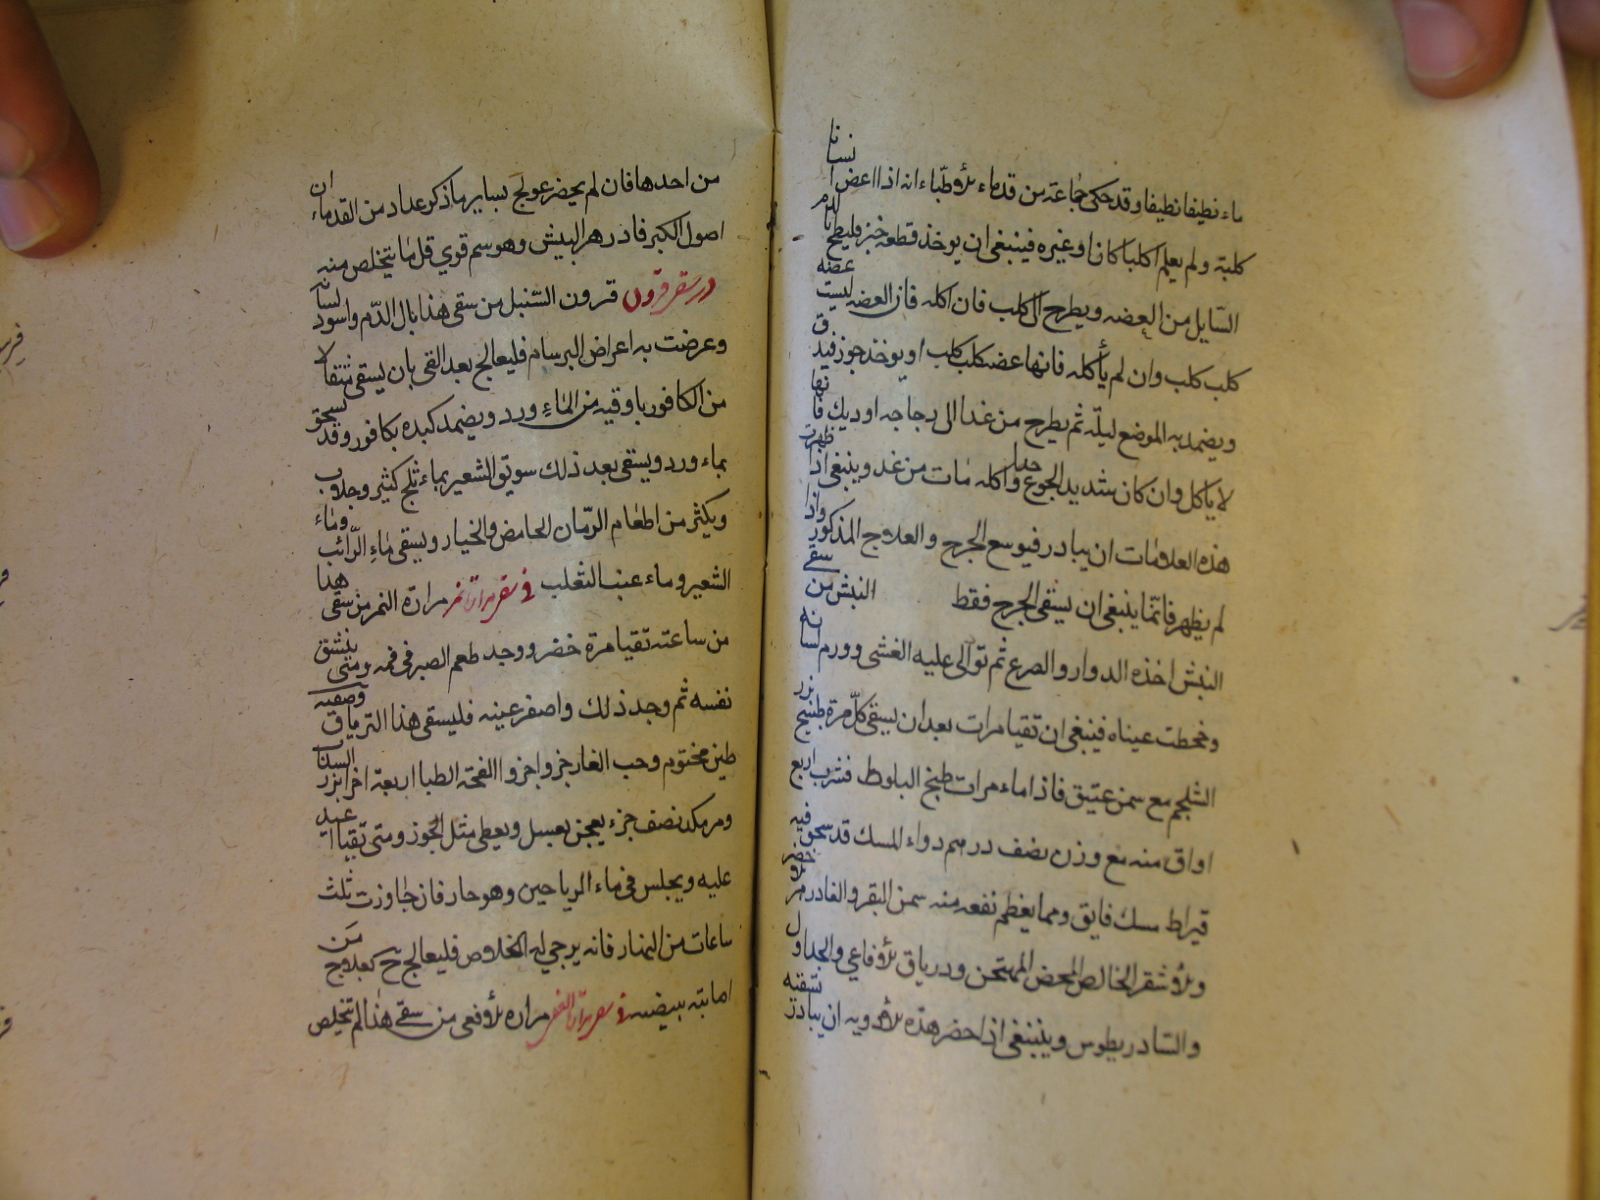 ماء نظيفا نظيفا وقد حكى جماعة من قدماء الأطباء انه اذا اعض انسانا
كلبة ولم يعلم اكلبا كان او غيره فينبغي ان يوخذ قطعة خبز فليطخ بالدم
السايل من العضه ويطرح الى كلب فان اكله فان العضه ليست عضه
كلب كلب وان لم يأكله فانها عضه كلب كلب او يوخذ جوز فيدق
ويضمد به الموضع ليلة ثم يطرح من غدا الى دجاجه او ديك فانها
لا ياكل وان كان شديد الجوع جدا واكله مات من غد وينبغي اذا ظهرت
هذه العلامات ان يبادر فيوسع الجرح والعلاج المذكور واذا
لم يظهر فانما ينبغي ان يشقى الجرح فقط البيش من سقي
البيش اخذه الدوار والصرع ثم توالى عليه الغشي وورم لسانه
وجحطت عيناه فينبغي ان تقيا مرات بعد ان يسقى كل مرة طبيخ بزر
الشلجم مع سمن عتيق فاذا ماء مرات طبخ البلوط فشرب اربع
اواق منه مع وزن نصف درهم دواء المسك قد سحق فيه
قيراط مسك فايق ومما يعظم نفعه منه سمن البقر والفادزهر
والأشقر الخالص المحض الممتحن ودرياق الأفاعي والجداول
والشادريطوس وينبغي اذا حضر هذه الأدويه ان يبادر بسقيه
من احدها فان لم يحضر عولج بساير ما ذكر عداد من القدماء ان
اصول الكبر فادزهر البيش وهو سم قوي قل ما يتخلص منه
در سقر قرون قرون السنبل من سقى هذا بال الدم واسود لسانه
وعرضت به اعراض البرسام فليعالج بعد القى بان يسقى مثقالا
من الكافور باوقيه من الماء ورد ويضمد كبده بكافور وقد سحق
بماء ورد ويسقى بعد ذلك سويق الشعير بماء ثلج كثير وجلاب
ويكثر من اطعام الرمان الحامض والخيار ويسقى ماء الرائب وماء
الشعير وماء عنب الثعلب في سقر مرارة نمر مرارة النمر من سقى هذا
من ساعته تقيا مرة خضر ووجد طعم الصبر في فمه ومتى ينشق
نفسه ثم وجد ذلك واصفر عينه فليسقى هذا الترياق وصفته
طين مختوم وحب الغار جزو اجزو الفحة الظبا اربعة اخر بزر السداب
ومر مكد نصف جزء يعجن بعسل ويعطى مثل الجوز ومتى تقياا عيد
عليه ويجلس في ماء الرياحين وهو حار فان جاوزت ثلث
ساعات من النهار فانه يرجي له الخلاص فليعالج ح بعلاج من
اما بته بيضه في سقر مرارة افعى مراره الأفعى من سقي هذا لم يتخلص